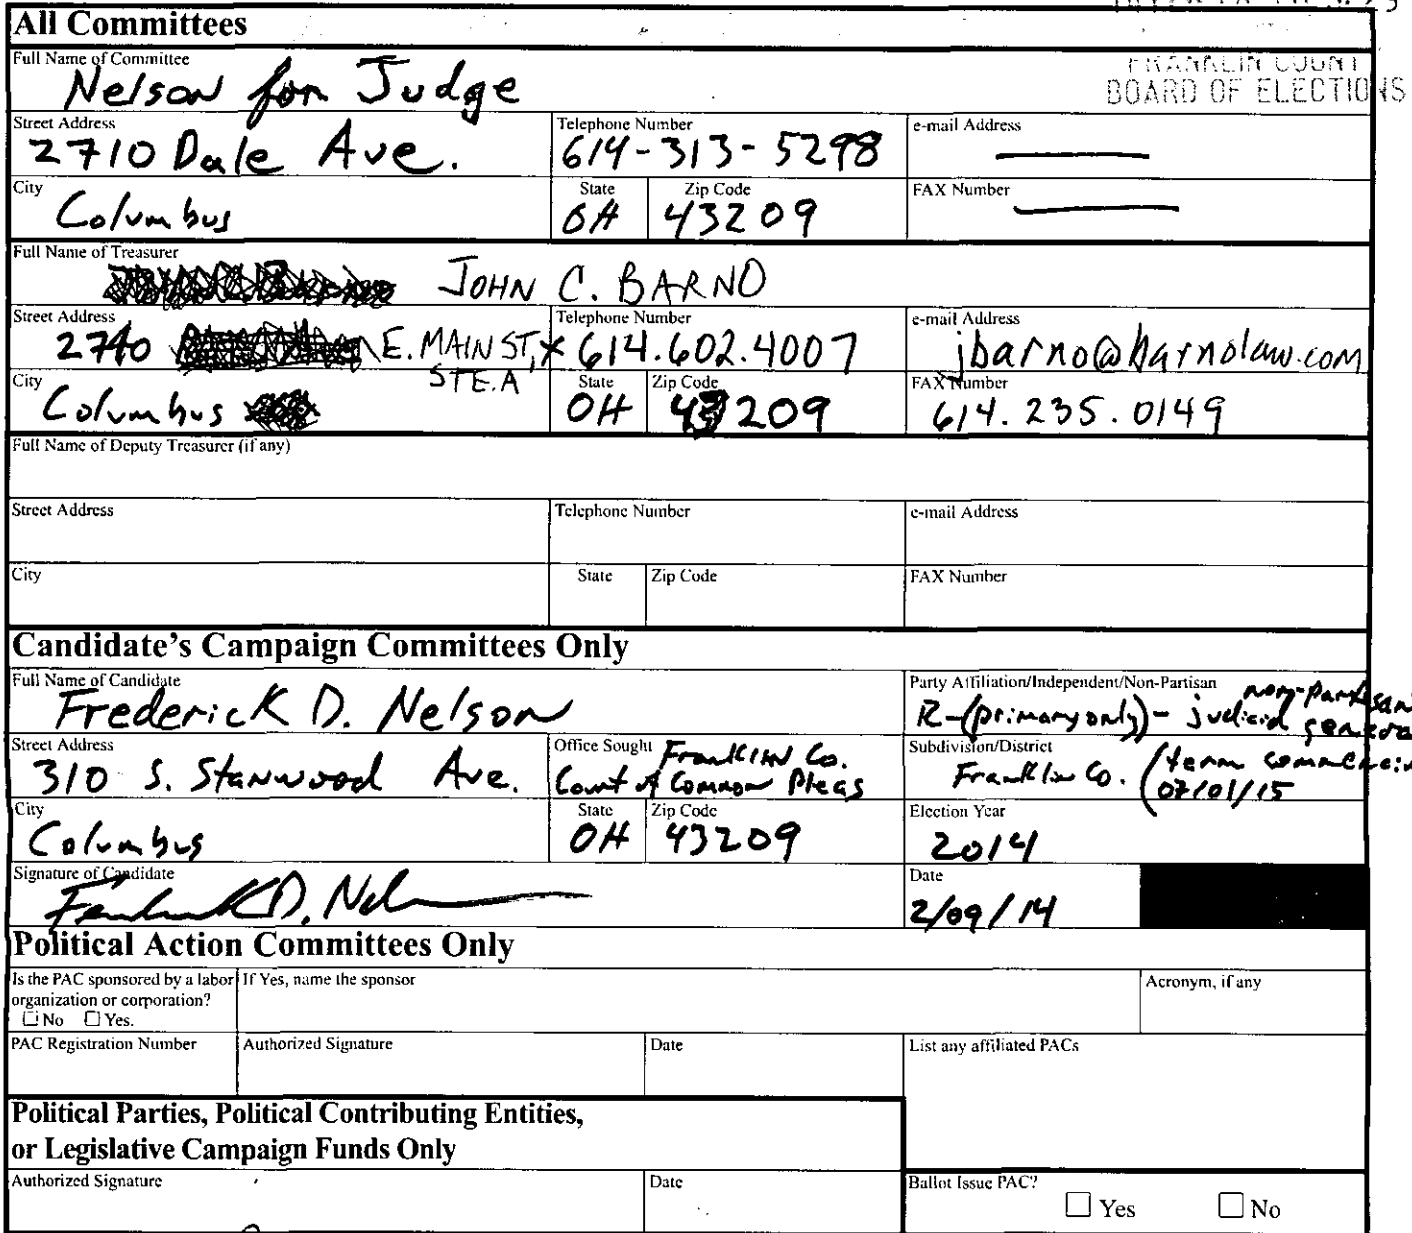 All Committees
Full Name of Committee
Nelson for Judge
FRANKLIN COUNT
BOARD OF ELECTIONS
Street Address
2710 Dale Ave.
Telephone Number
614-313-5298
e-mail Address
City
Columbus
State
OH
Zip Code
43209
FAX Number
Full Name of Treasurer
JOHN C. BARNO
Street Address
2740 E. MAIN ST,
STE.A
Telephone Number
614.602.4007
e-mail Address
jbarno@barnolaw.com
City
Columbus
State
OH
Zip Code
43209
FAX Number
614.235.0149
Full Name of Deputy Treasurer (if any)
Street Address
Telephone Number
e-mail Address
City
State
Zip Code
FAX Number
Candidate's Campaign Committees Only
Full Name of Candidate
Frederick D. Nelson
Party Affiliation/Independent/Non-Partisan
non-partisan
R-(primary only)- judicial genera
Street Address
310 S. Stanwood Ave.
Office Sought
Franklin Co.
Court of Common Pleas
Subdivision/District
Franklin Co.
(term commencin
07/01/15
City
Columbus
State
OH
Zip Code
43209
Election Year
2014
Signature of Candidate
Frederick D. Nelson
Date
2/09/14
Political Action Committees Only
Is the PAC sponsored by a labor
organization or corporation?
☐ No ☐ Yes.
If Yes, name the sponsor
Acronym, if any
PAC Registration Number
Authorized Signature
Date
List any affiliated PACs
Political Parties, Political Contributing Entities,
or Legislative Campaign Funds Only
Authorized Signature
Date
Ballot Issue PAC?
☐ Yes ☐ No